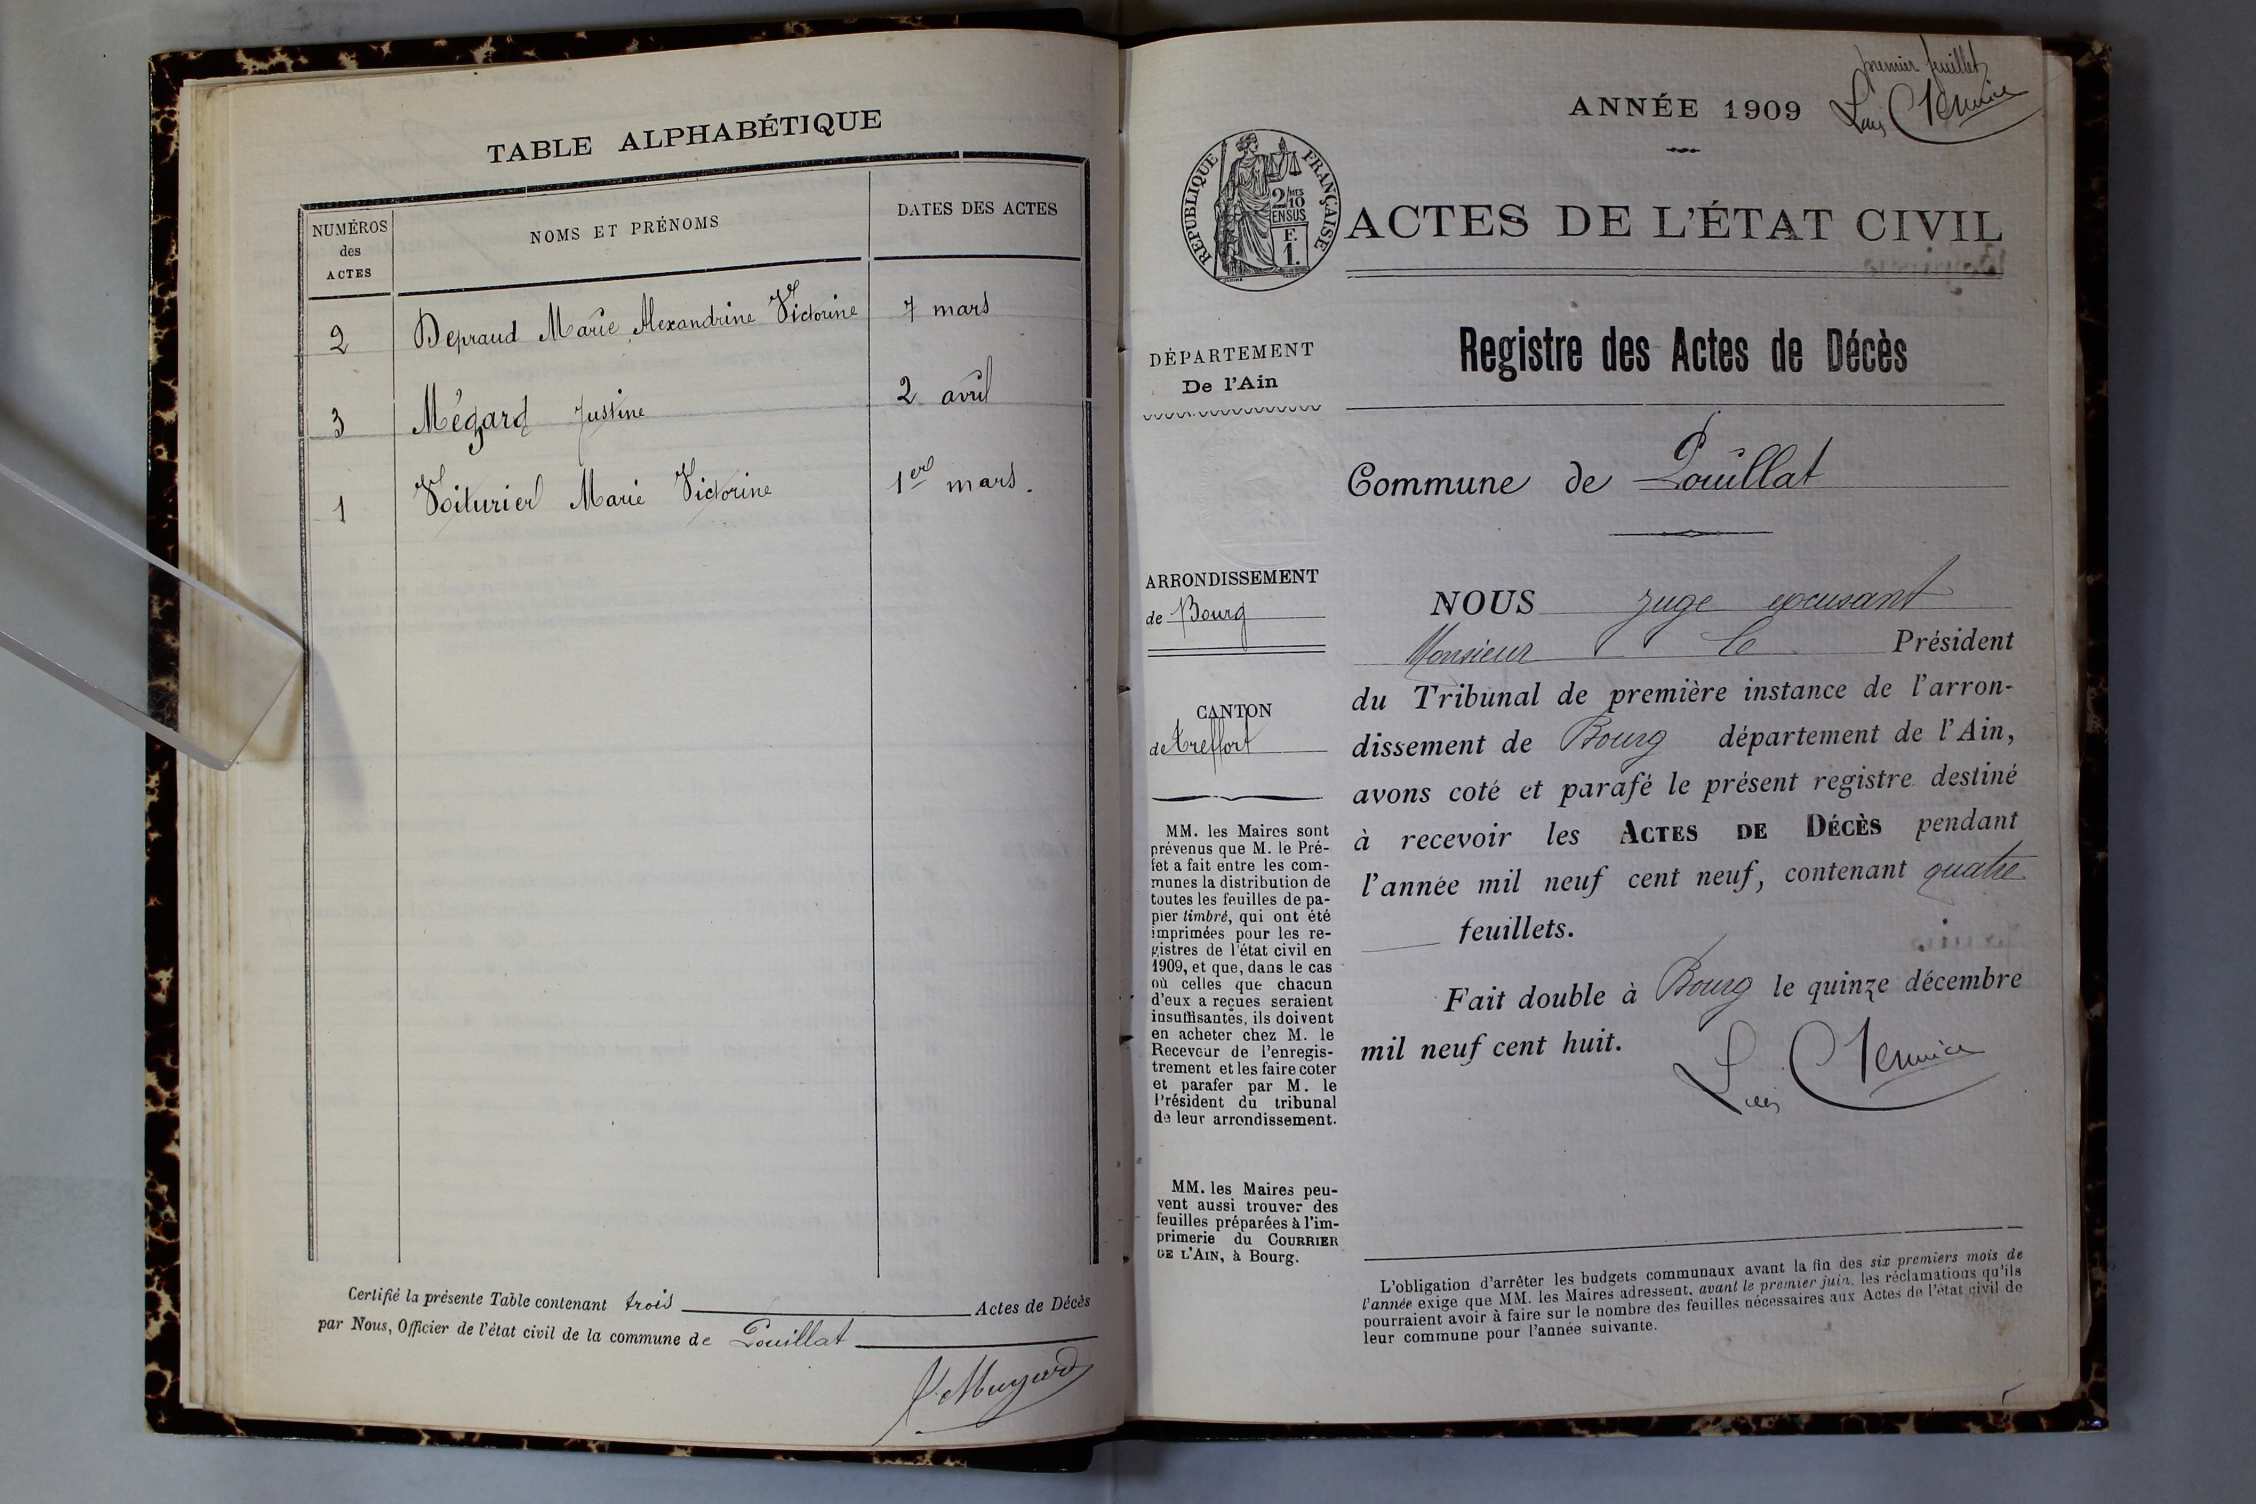 TABLE ALPHABÉTIQUE
NUMÉROS des ACTES
NOMS ET PRÉNOMS
DATES DES ACTES
2 Depraud Marie Alexandrine Victorine 7 mars
3 Mégard Justine 2 avril
1 Voiturier Marie Victorine 1er mars.
Certifié la présente Table contenant trois Actes de Décès
par Nous, Officier de l'état civil de la commune de Pouillat
premier feuillet
ANNÉE 1909
RÉPUBLIQUE FRANÇAISE
2/10
EN SUS
F.
1.
ACTES DE L'ÉTAT CIVIL
Registre des Actes de Décès
DÉPARTEMENT
De l'Ain
Commune de Pouillat
ARRONDISSEMENT
de Bourg
CANTON
de Treffort
MM. les Maires sont
prévenus que M. le Pré-
fet a fait entre les com-
munes la distribution de
toutes les feuilles de pa-
pier timbré, qui ont été
imprimées pour les re-
gistres de l'état civil en
1909, et que, dans le cas
où celles que chacun
d'eux a reçues seraient
insuffisantes, ils doivent
en acheter chez M. le
Receveur de l'enregis-
trement et les faire coter
et parafer par M. le
Président du tribunal
de leur arrondissement.
MM. les Maires peu-
vent aussi trouver des
feuilles préparées à l'im-
primerie du COURRIER
DE L'AIN, à Bourg.
NOUS juge excusant
Monsieur le Président
du Tribunal de première instance de l'arron-
dissement de Bourg département de l'Ain,
avons coté et parafé le présent registre destiné
à recevoir les ACTES DE DÉCÈS pendant
l'année mil neuf cent neuf, contenant quatre
feuillets.
Fait double à Bourg le quinze décembre
mil neuf cent huit.
L'obligation d'arrêter les budgets communaux avant la fin des six premiers mois de
l'année exige que MM. les Maires adressent, avant le premier juin, les réclamations qu'ils
pourraient avoir à faire sur le nombre des feuilles nécessaires aux Actes de l'état civil de
leur commune pour l'année suivante.